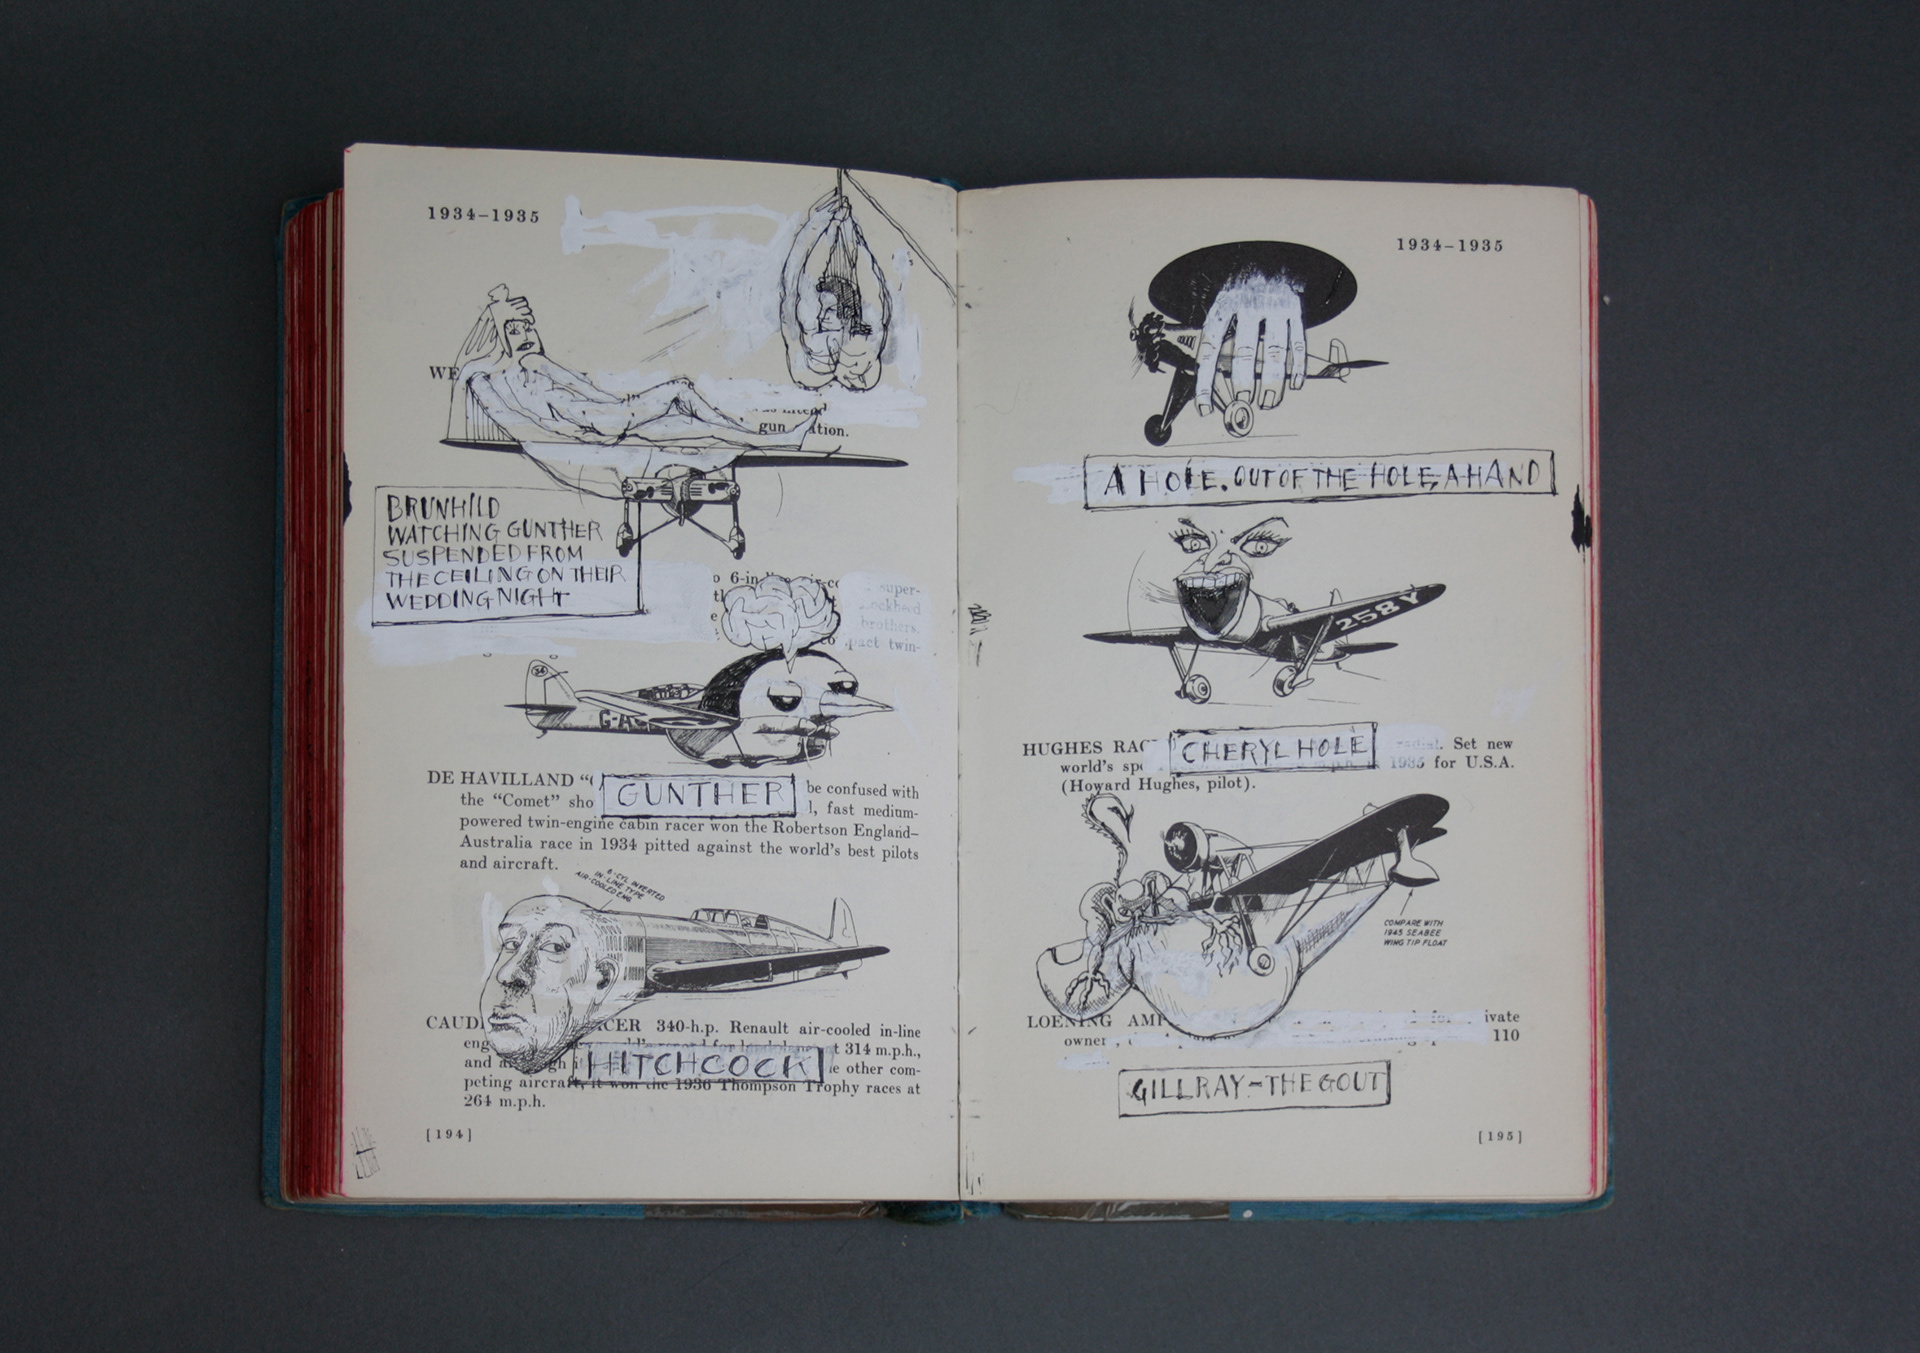 1934–1935
WE
gun ation.
BRUNHILD
WATCHING GUNTHER
SUSPENDED FROM
THE CEILING ON THEIR
WEDDING NIGHT
6-in
super-
brothers.
twin-
34
G-A
DE HAVILLAND “ be confused with
the “Comet” sho l, fast medium-
GUNTHER
powered twin-engine cabin racer won the Robertson England–
Australia race in 1934 pitted against the world’s best pilots
and aircraft.
6-CYL INVERTED
IN-LINE TYPE
AIR-COOLED ENG
CAUD CER 340-h.p. Renault air-cooled in-line
eng for t 314 m.p.h.,
and other com-
HITCHCOCK
peting aircraft, it won the 1936 Thompson Trophy races at
264 m.p.h.
[194]
1934–1935
A HOLE. OUT OF THE HOLE, A HAND
258Y
HUGHES RAC radial. Set new
CHERYL HOLE
world’s spe in 1935 for U.S.A.
(Howard Hughes, pilot).
COMPARE WITH
1945 SEABEE
WING TIP FLOAT
LOENING AMP for ivate
owner 110
GILLRAY – THE GOUT
[195]